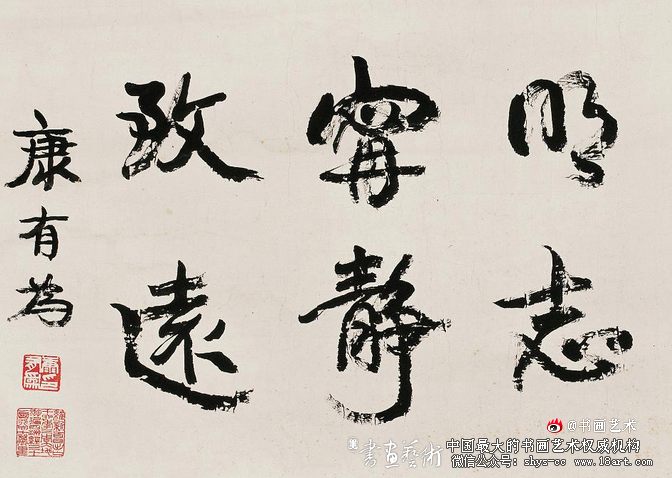 明志
寧静
致遠
康有為
@书画艺术
書画藝術
中国最大的书画艺术权威机构
微信公众号: shys-cc www.18art.com